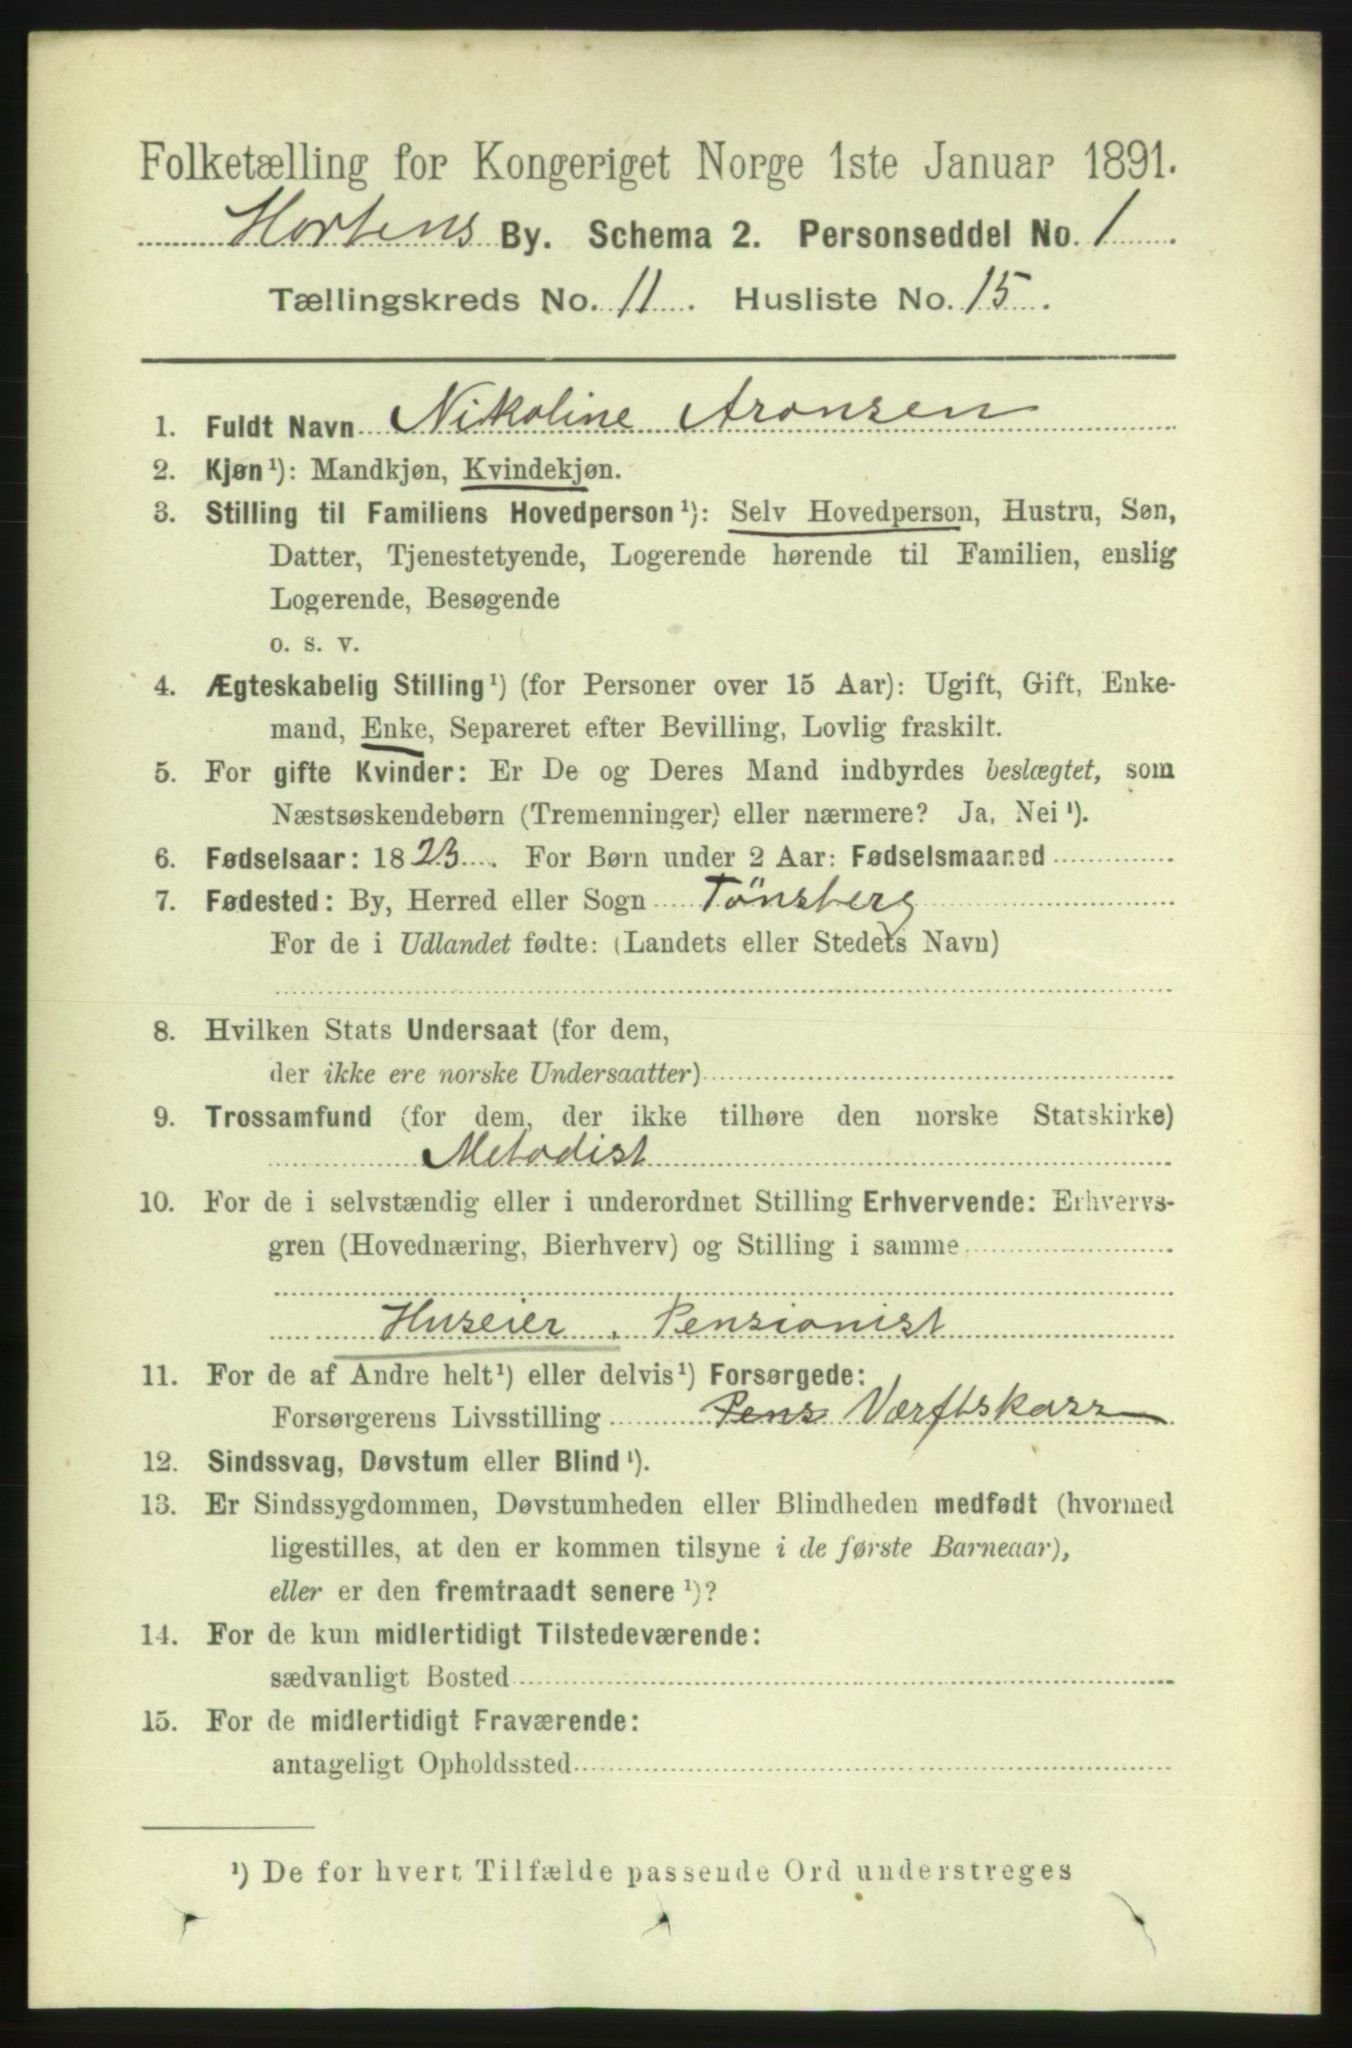 Folketælling for Kongeriget Norge 1ste Januar 1891.
Hortens By. Schema 2. Personseddel No. 1
Tællingskreds No. 11. Husliste No. 15.
1. Fuldt Navn Nikoline Aronsen
2. Kjøn¹): Mandkjøn, Kvindekjøn.
3. Stilling til Familiens Hovedperson¹): Selv Hovedperson, Hustru, Søn,
Datter, Tjenestetyende, Logerende hørende til Familien, enslig
Logerende, Besøgende
o. s. v.
4. Ægteskabelig Stilling¹) (for Personer over 15 Aar): Ugift, Gift, Enke-
mand, Enke, Separeret efter Bevilling, Lovlig fraskilt.
5. For gifte Kvinder: Er De og Deres Mand indbyrdes beslægtet, som
Næstsøskendebørn (Tremenninger) eller nærmere? Ja, Nei¹).
6. Fødselsaar: 1823. For Børn under 2 Aar: Fødselsmaaned
7. Fødested: By, Herred eller Sogn Tönsberg
For de i Udlandet fødte: (Landets eller Stedets Navn)
8. Hvilken Stats Undersaat (for dem,
der ikke ere norske Undersaatter)
9. Trossamfund (for dem, der ikke tilhøre den norske Statskirke)
Metodist
10. For de i selvstændig eller i underordnet Stilling Erhvervende: Erhvervs-
gren (Hovednæring, Bierhverv) og Stilling i samme
Huseier, Pensionist
11. For de af Andre helt¹) eller delvis¹) Forsørgede:
Forsørgerens Livsstilling Pens Værftskass
12. Sindssvag, Døvstum eller Blind¹).
13. Er Sindssygdommen, Døvstumheden eller Blindheden medfødt (hvormed
ligestilles, at den er kommen tilsyne i de første Barneaar),
eller er den fremtraadt senere¹)?
14. For de kun midlertidigt Tilstedeværende:
sædvanligt Bosted
15. For de midlertidigt Fraværende:
antageligt Opholdssted
¹) De for hvert Tilfælde passende Ord understreges